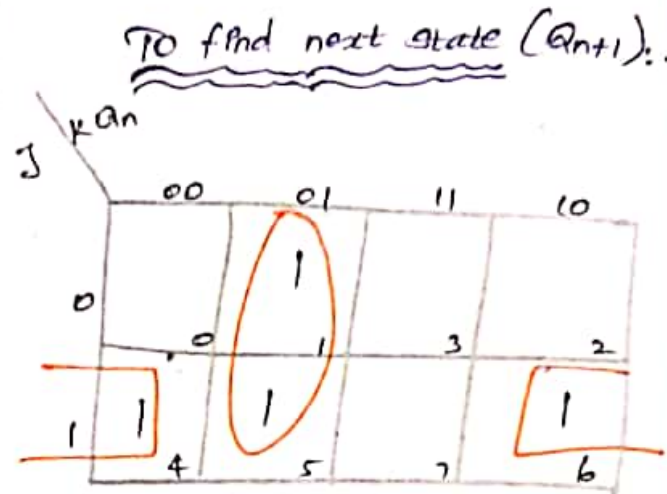 To find next state (Qn+1):.
J KQn
00 01 11 10
0 1
0 1 3 2
1 1 1 1
4 5 7 6